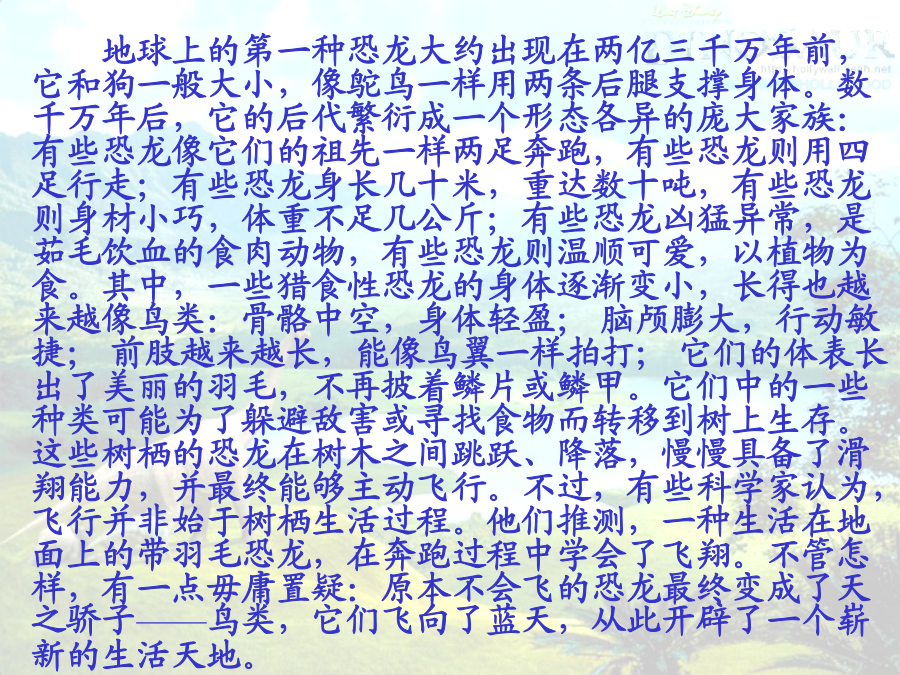 地球上的第一种恐龙大约出现在两亿三千万年前，
它和狗一般大小，像鸵鸟一样用两条后腿支撑身体。数
千万年后，它的后代繁衍成一个形态各异的庞大家族：
有些恐龙像它们的祖先一样两足奔跑，有些恐龙则用四
足行走；有些恐龙身长几十米，重达数十吨，有些恐龙
则身材小巧，体重不足几公斤；有些恐龙凶猛异常，是
茹毛饮血的食肉动物，有些恐龙则温顺可爱，以植物为
食。其中，一些猎食性恐龙的身体逐渐变小，长得也越
来越像鸟类：骨骼中空，身体轻盈； 脑颅膨大，行动敏
捷； 前肢越来越长，能像鸟翼一样拍打； 它们的体表长
出了美丽的羽毛，不再披着鳞片或鳞甲。它们中的一些
种类可能为了躲避敌害或寻找食物而转移到树上生存。
这些树栖的恐龙在树木之间跳跃、降落，慢慢具备了滑
翔能力，并最终能够主动飞行。不过，有些科学家认为，
飞行并非始于树栖生活过程。他们推测，一种生活在地
面上的带羽毛恐龙，在奔跑过程中学会了飞翔。不管怎
样，有一点毋庸置疑：原本不会飞的恐龙最终变成了天
之骄子——鸟类，它们飞向了蓝天，从此开辟了一个崭
新的生活天地。